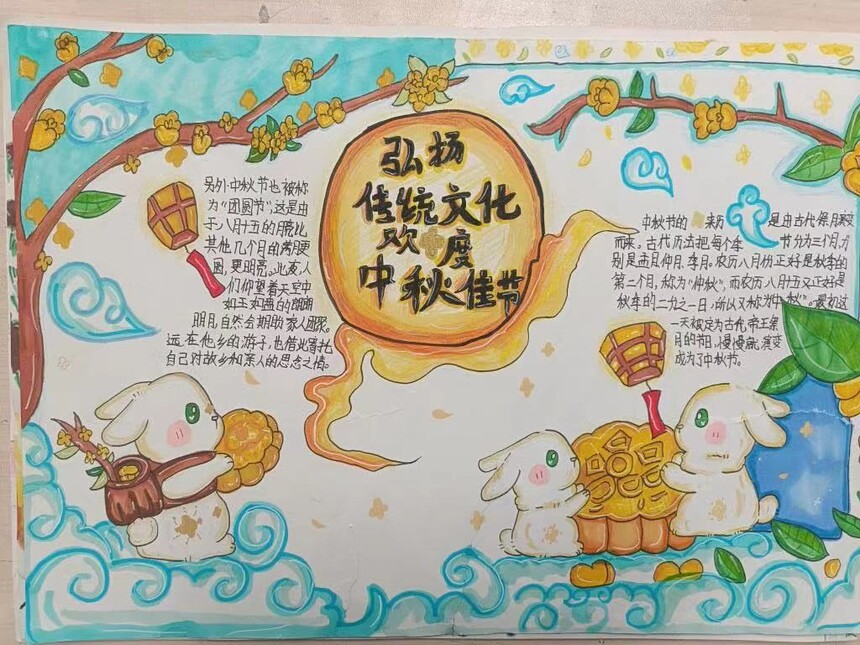 弘扬
传统文化
欢 度
中秋佳节
另外中秋节也被称
为“团圆节”,这是由
于八月十五的月亮比
其他几个月的满月更
圆,更明亮。此夜,人
们仰望着天空中
如玉如盘的朗朗
明月,自然会期盼家人团聚。
远在他乡的游子,也借此寄托
自己对故乡和亲人的思念之情。
中秋节的 来历 是由古代祭月演变
而来。古代历法把每个季 节分为三个月,分
别是孟月、仲月、季月。农历八月份正好是秋季的
第二个月,称为“仲秋”,而农历八月十五又正好是
秋季的二分之一日,所以又称为“中秋”。最初这
一天被定为古代帝王祭
月的节日,慢慢就演变
成为了中秋节。